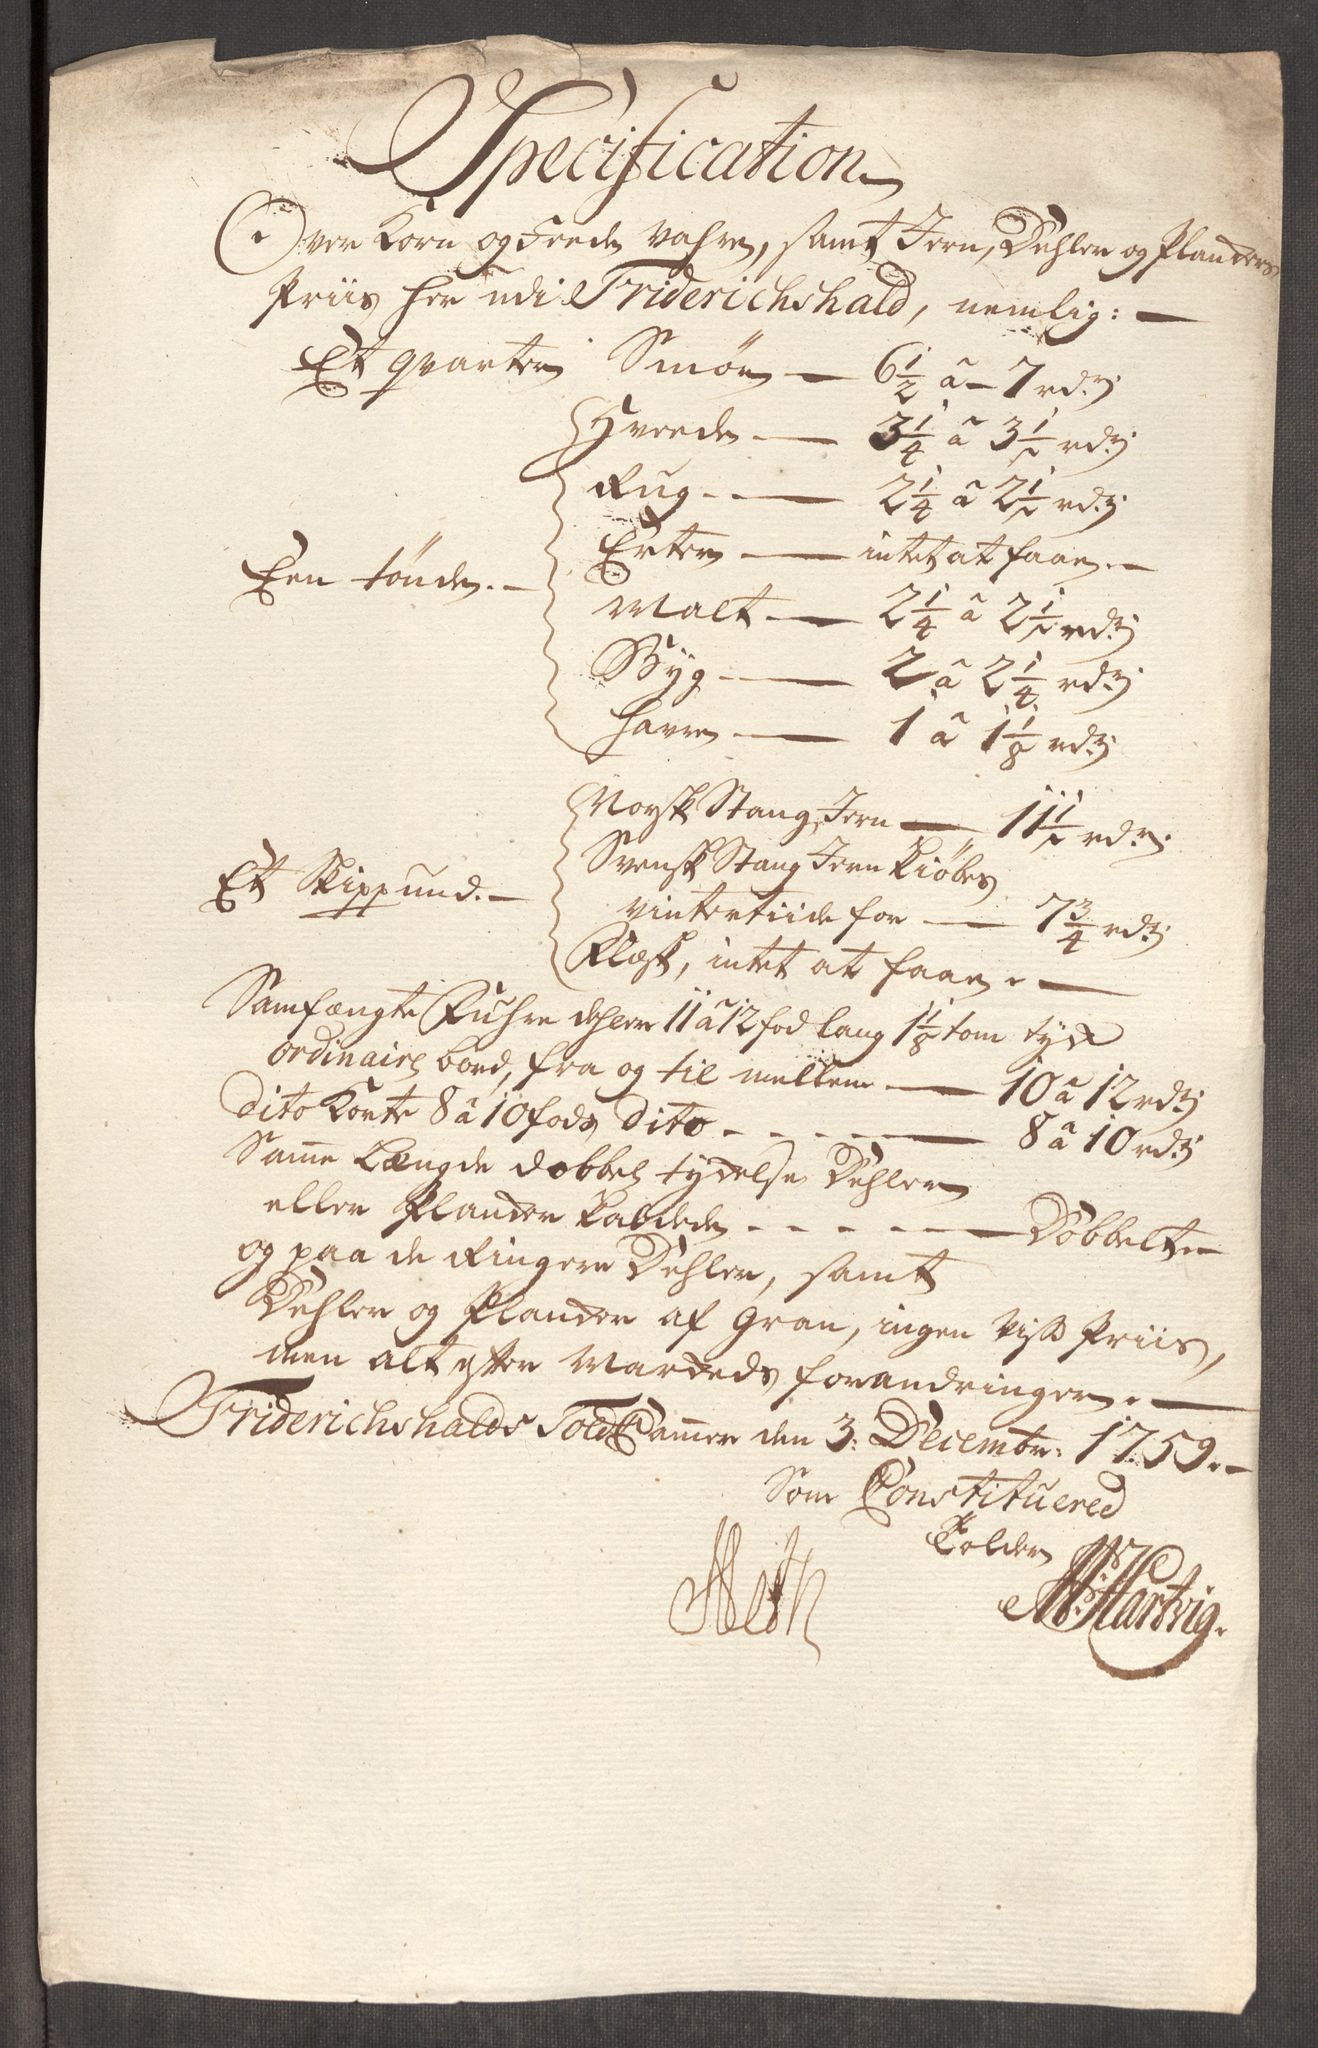 Specification
Over Korn og Feede Vahre, samt Jern, Dehler og Planckers
Priis her udi Friderichshald, nemlig: —
Et qvarteer Smør — 6 1/2 â 7 rd:
Hveede — 3 1/4 â 3 1/2 rd:
Rug — 2 1/4 â 2 1/2 rd:
Erter — intet at faae. —
Een tönde. — Malt — 2 1/4 â 2 1/2 rd:
Byg — 2 â 2 1/4 rd:
Havre — 1 â 1 1/8 rd:
Norsk Stang Jern — 11 1/2 rd:
Svensk Stang Jern Kiöbes
Et Skippund. — vintertiide for — 7 3/4 rd:
Flæsk, intet at faae. —
Samfængte Fuhre dehler 11 â 12 fod lang 1 1/8 tom tyck
ordinaire bord, fra og til mellem — 10 â 12 rd:
dito Korte 8 â 10 fods dito — 8 â 10 rd:
Samme Længde dobbel tyckelse Dehler
eller Plancker — Dobbelt —
og paa de Ringere Dehler, samt
Dehler og Plancker af Gran, ingen viss Priis,
men alt efter Marckeds forandringer. —
Friderichshalds Told Cammer den 3: Decembr: 1759. —
Som Constituered
Tolder
Hartvig.